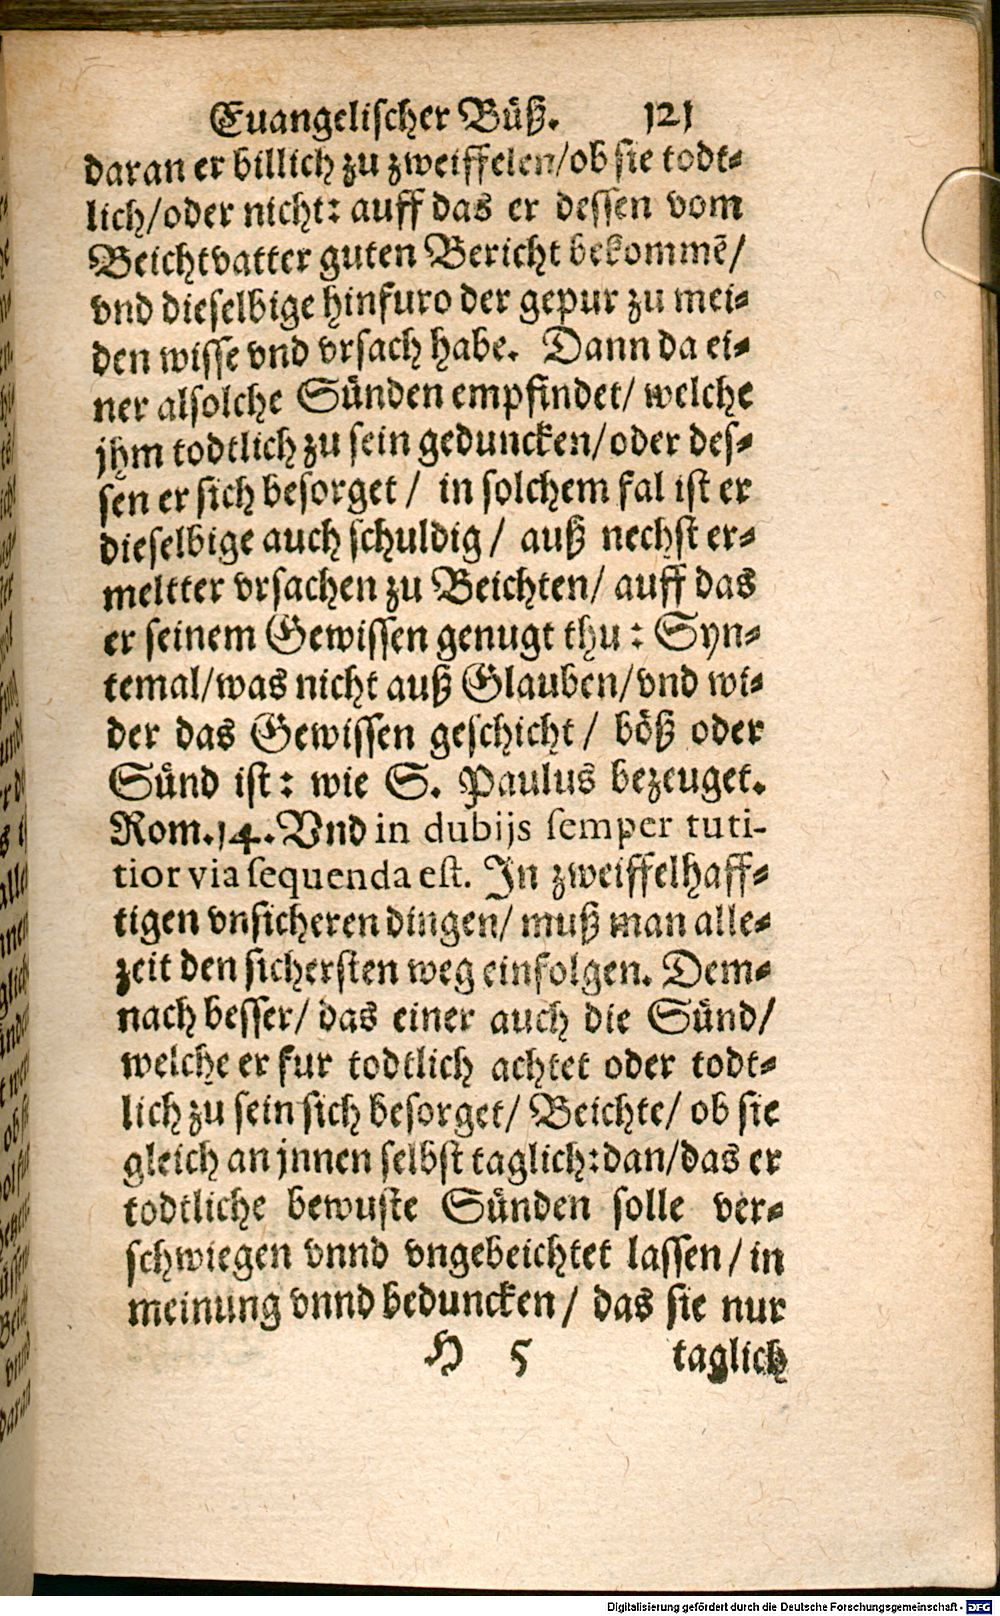 Euangelischer Büß. 121
daran er billich zu zweiffelen/ob sie todt-
lich/oder nicht: auff das er dessen vom
Beichtvatter guten Bericht bekommẽ/
vnd dieselbige hinfuro der gepur zu mei-
den wisse vnd vrsach habe. Dann da ei-
ner alsolche Sünden empfindet/ welche
jhm todtlich zu sein geduncken/oder des-
sen er sich besorget / in solchem fal ist er
dieselbige auch schuldig / auß nechst er-
meltter vrsachen zu Beichten/ auff das
er seinem Gewissen genugt thu: Syn-
temal/was nicht auß Glauben/vnd wi-
der das Gewissen geschicht / böß oder
Sünd ist: wie S. Paulus bezeuget.
Rom.14. Vnd in dubijs semper tuti-
tior via sequenda est. In zweiffelhaff-
tigen vnsicheren dingen/ muß man alle-
zeit den sichersten weg einfolgen. Dem-
nach besser/ das einer auch die Sünd/
welche er fur todtlich achtet oder todt-
lich zu sein sich besorget/ Beichte/ ob sie
gleich an jnnen selbst taglich:dan/das er
todtliche bewuste Sünden solle ver-
schwiegen vnnd vngebeichtet lassen/ in
meinung vnnd beduncken / das sie nur
H 5 taglich
Digitalisierung gefördert durch die Deutsche Forschungsgemeinschaft - DFG